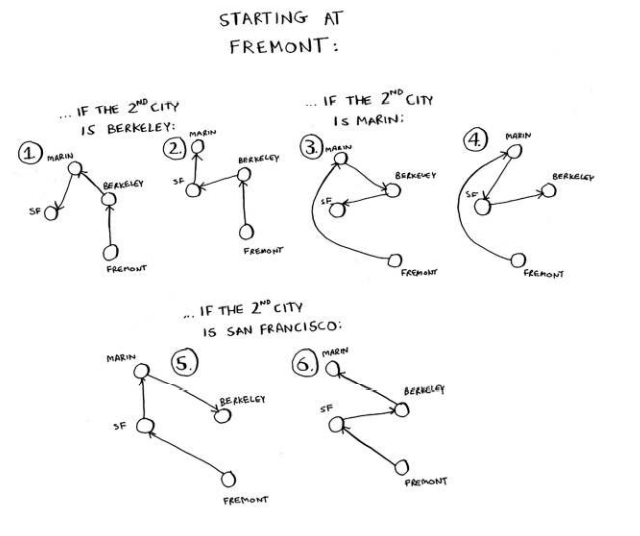 STARTING AT
FREMONT:
... IF THE 2ND CITY
IS BERKELEY:
... IF THE 2ND CITY
IS MARIN:
1.
MARIN
BERKELEY
SF
FREMONT
2.
MARIN
BERKELEY
SF
FREMONT
3.
MARIN
BERKELEY
SF
FREMONT
4.
MARIN
BERKELEY
SF
FREMONT
... IF THE 2ND CITY
IS SAN FRANCISCO:
5.
MARIN
BERKELEY
SF
FREMONT
6.
MARIN
BERKELEY
SF
FREMONT